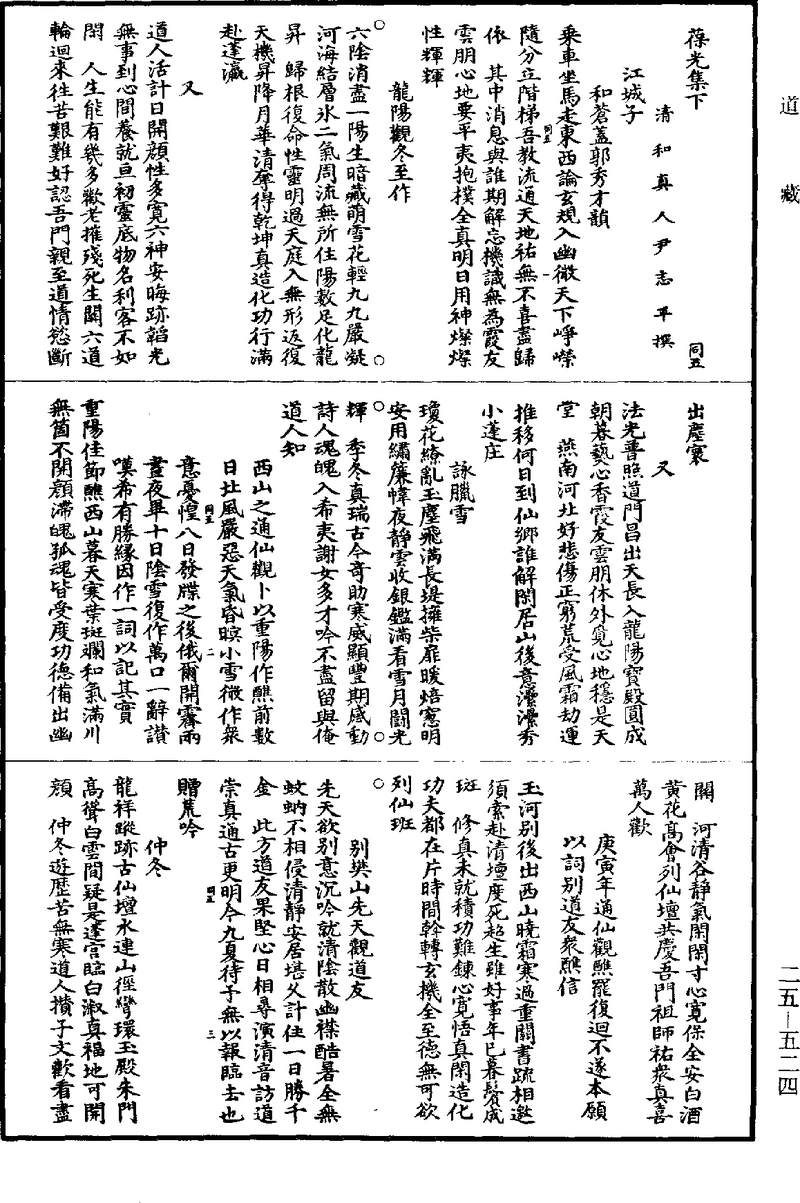 道藏
葆光集下
清和真人尹志平撰
同五
江城子
和蒼蓋郭秀才韻
乘車坐馬走東西論玄規入幽微天下崢嶸
隨分立階梯吾教流通天地祐無不喜盡歸
依　其中消息與誰期解忘機識無為霞友
雲朋心地要平夷抱樸全真明日用神燦燦
性輝輝
龍陽觀冬至作
六陰消盡一陽生暗藏萌雪花輕九九嚴凝
河海結層氷二氣周流無所住陽數足化龍
昇　歸根復命性靈明過天庭入無形返復
天機昇降月華清奪得乾坤真造化功行滿
赴蓬瀛
又
道人活計日開顏性多寬六神安晦跡韜光
無事到心間養就亘初靈底物名利客不如
閑　人生能有幾多歡老摧殘死生關六道
輪迴來往苦艱難好認吾門親至道情慾斷
出塵寰
又
法光普照道門昌出天長入龍陽寶殿圓成
朝暮爇心香霞友雲朋休外覓心地穩是天
堂　燕南河北好悲傷正窮荒受風霜劫運
推移何日到仙鄉誰解閑居山後意瀠瀠秀
小蓬庄
詠臘雪
瓊花繚亂玉塵飛滿長堤擁柴扉暖焙窻明
安用繡簾幃夜靜雲收銀鑑滿看雪月鬭光
輝　季冬真瑞古今奇助寒威顯豐期感動
詩人魂魄入希夷謝女多才吟不盡留與俺
道人知
西山之通仙觀卜以重陽作醮前數
日北風嚴惡天氣昏暝小雪微作衆
意憂惶八日發牒之後俄爾開霽兩
晝夜畢十日陰雪復作萬口一辭讃
嘆希有勝緣因作一詞以記其實
重陽佳節醮西山暮天寒葉斑斕和氣滿川
無箇不開顏滯魄孤魂皆受度功德備出幽
關　河清谷靜氣閑閑寸心寬保全安白酒
黃花高會列仙壇共慶吾門祖師祐衆真喜
萬人歡
庚寅年通仙觀醮罷復迴不遂本願
以詞別道友衆醮信
玉河別後出西山曉霜寒過重關書䟽相邀
須索赴清壇度死超生雖好事年已暮鬢成
斑　修真未就積功難鍊心寬悟真閑造化
功夫都在片時間斡轉玄機全至德無可欲
列仙班
別樊山先天觀道友
先天欲別意沉吟就清陰散幽襟酷暑全無
蚊蚋不相侵清靜安居堪父計住一日勝千
金　此方道友果堅心日相尋演清音訪道
崇真通古更明今九夏待予無以報臨去也
贈荒吟
仲冬
龍祥蹤跡古仙壇永連山徑彎環玉殿朱門
高聳白雲間疑是蓬宮臨白溆真福地可開
顏　仲冬遊歷苦無寒道人攢子文歡看盡
二五—五二四